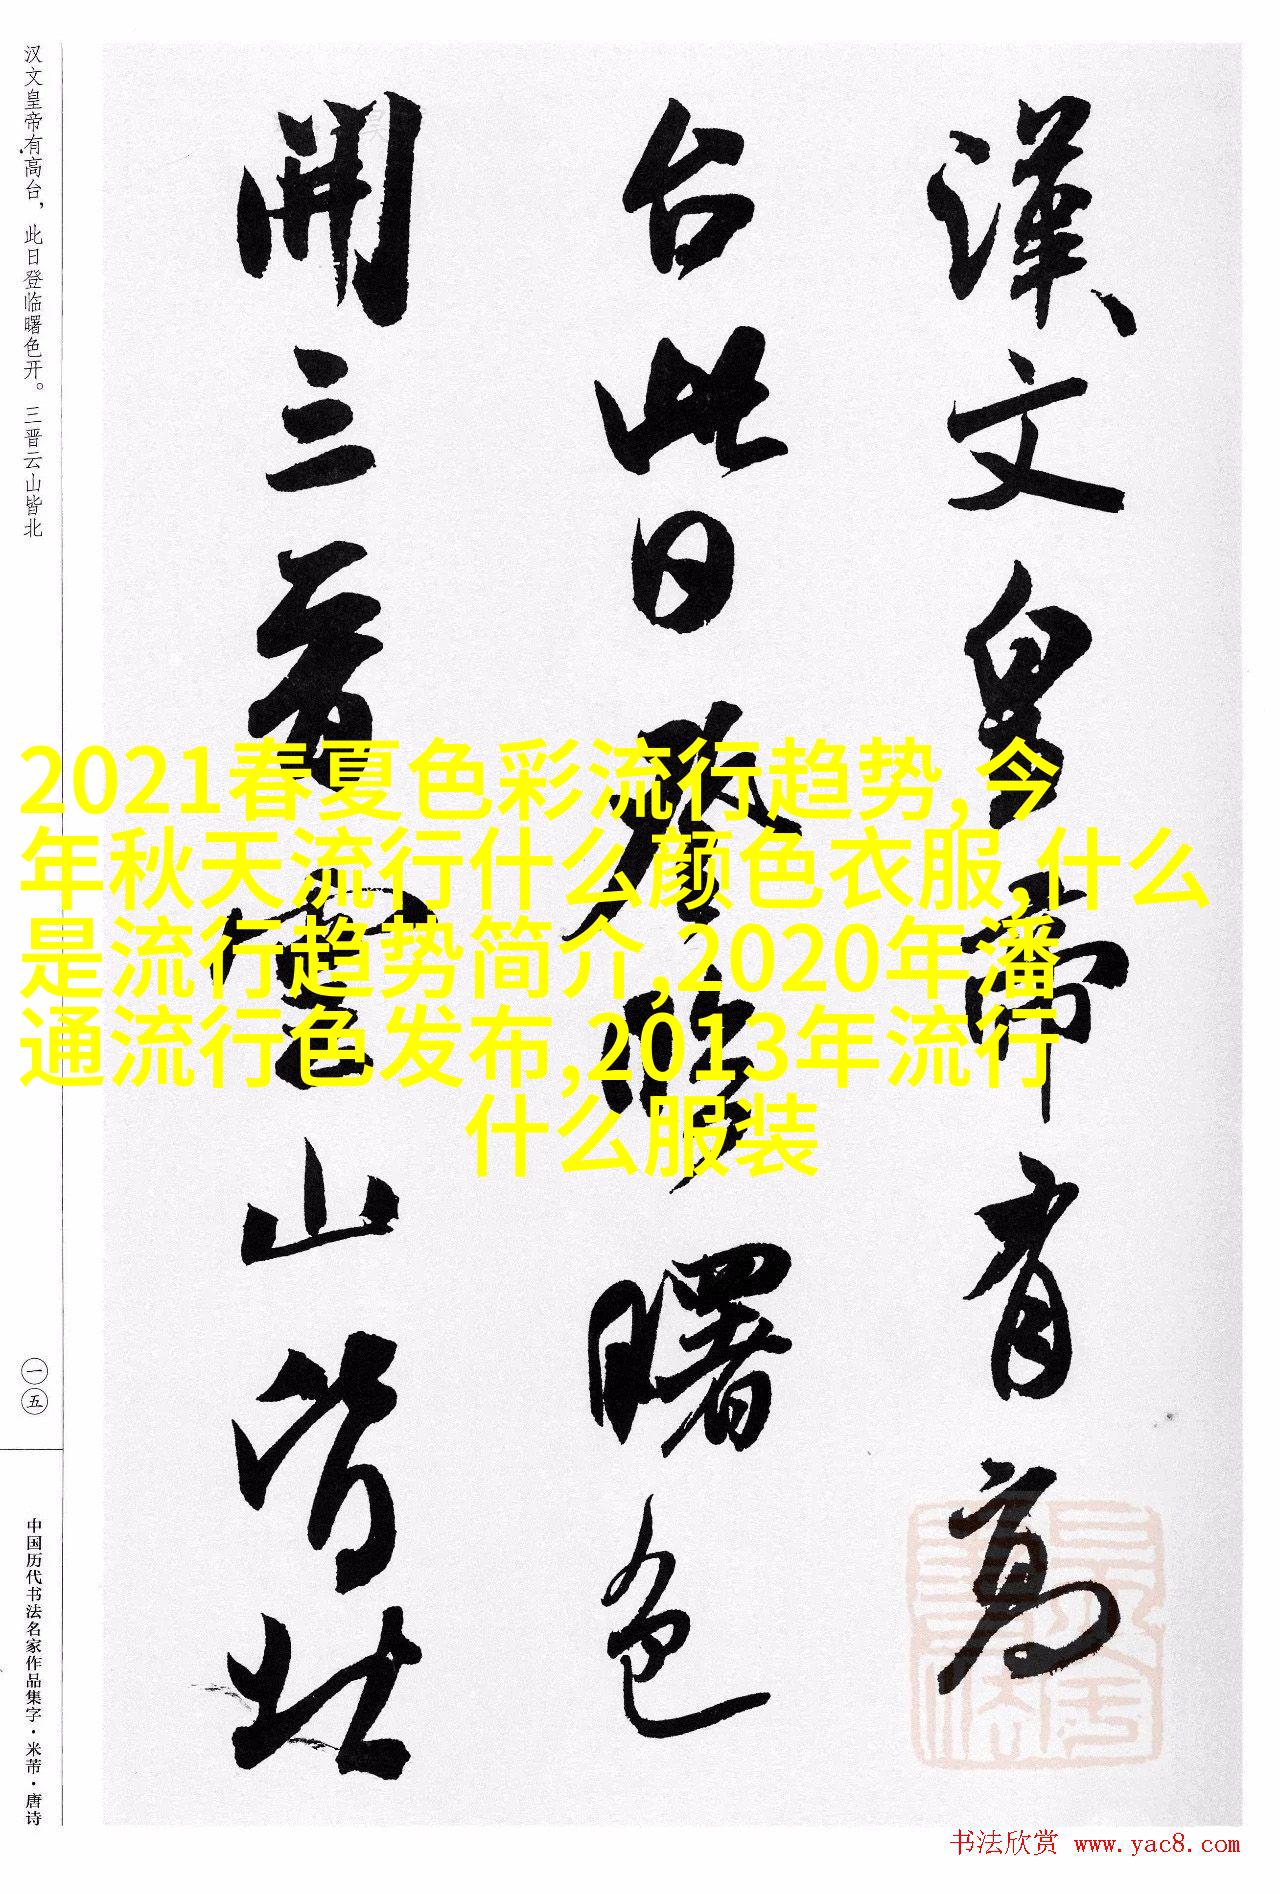 漢文皇帝有高
台此日登臨曙色
開三晉雲山皆北
汉文皇帝有高台，此日登临曙色开。三晋云山皆北
一五
中国历代书法名家作品集字·米芾·唐诗
2021春夏色彩流行趋势,今
年秋天流行什么颜色衣服,什么
是流行趋势简介,2020年潘
通流行色发布,2013年流行
什么服装
书法欣赏 www.yac8.com